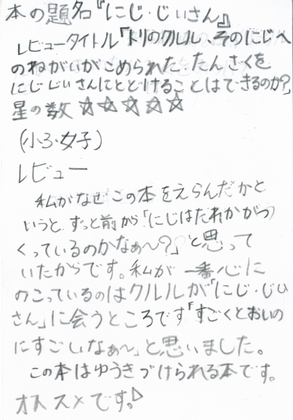 本の題名『にじ・じいさん』
レビュータイトル「トリのクルル、そのにじへ
のねがいがこめられた、たんさくを
にじじいさんにとどけることはできるのか?」
星の数☆☆☆☆☆
(小3・女子)
レビュー
私がなぜこの本をえらんだかと
いうと、ずっと前から「にじはだれかがつ
くっているのかなぁ〜?」と思って
いたからです。私が一番心に
のこっているのはクルルが「にじ・じい
さん」に会うところです「すごくとおいの
にすごいなぁ〜」と思いました。
この本はゆうきづけられる本です。
オススメですっ♪